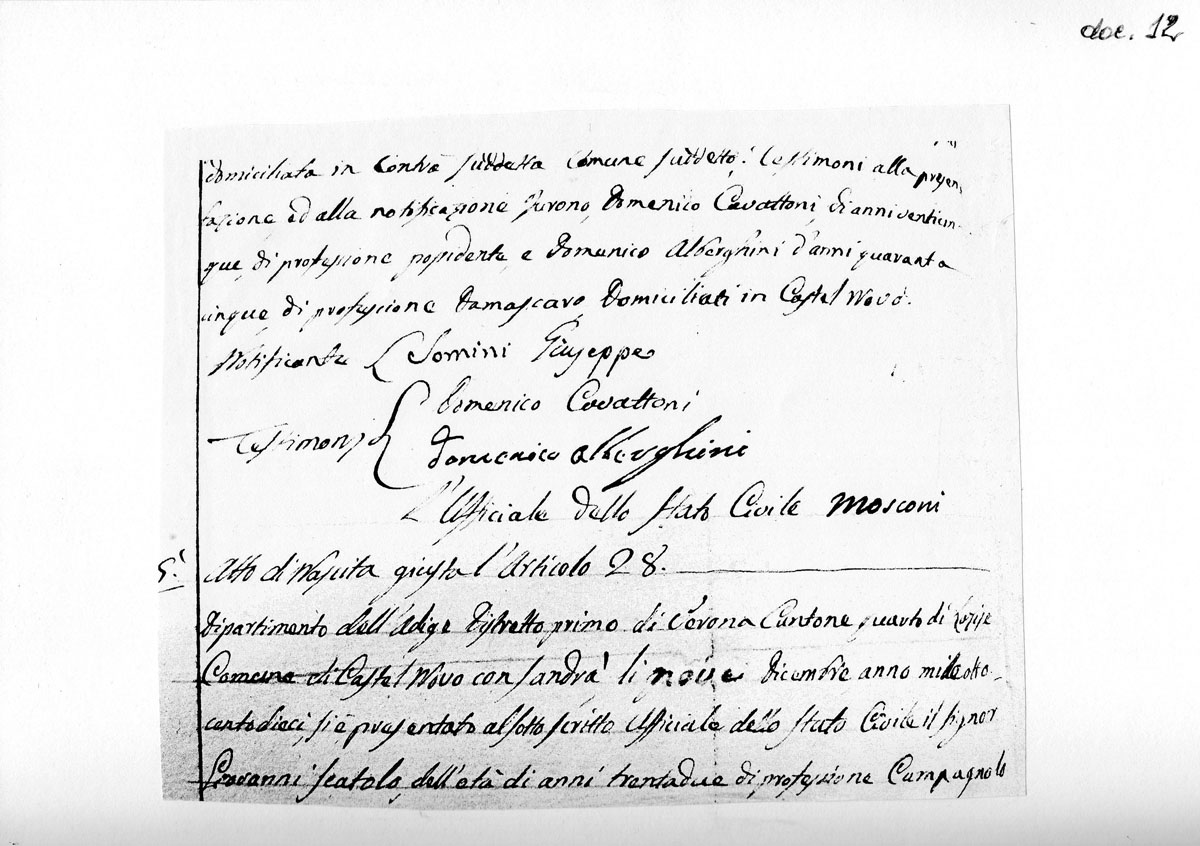 doc. 12
domiciliata in Contrà suddetta Comune suddetto. Testimoni alla presen
tazione ed alla notificazione furono, Domenico Cavattoni, di anni venticin-
que, di professione possidente, e Domenico Alberghini d'anni quaranta
cinque, di professione Damascaro Domiciliati in Castel Novo.
Notificante { Giuseppe
Domenico Cavattoni
Testimonj {
Domenico Alberghini
L'Ufficiale dello Stato Civile Mosconi
5.° Atto di Nascita giusta l'Articolo 28.
Dipartimento dell'Adige Distretto primo di Verona Cantone quarto di Lazise
Comune di Castel Novo con Sandrà li nove Dicembre anno mille otto-
cento dieci, si è presentato al sotto scritto Ufficiale dello Stato Civile il Signor
Giovanni Scatolo, dell'età di anni trentadue di professione Campagnolo